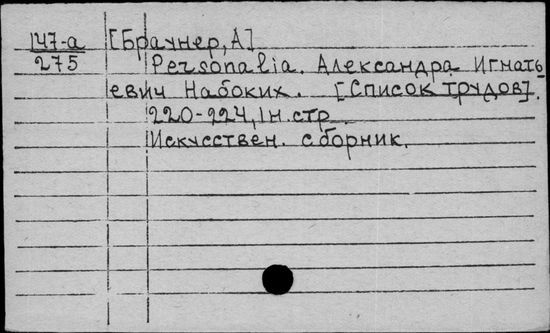 147-а [Браунер, А]
275 Personalia. Александра Игнать
евич Набоких. [Список трудов].
220-224, 1 н. стр.
Искусствен. сборник.